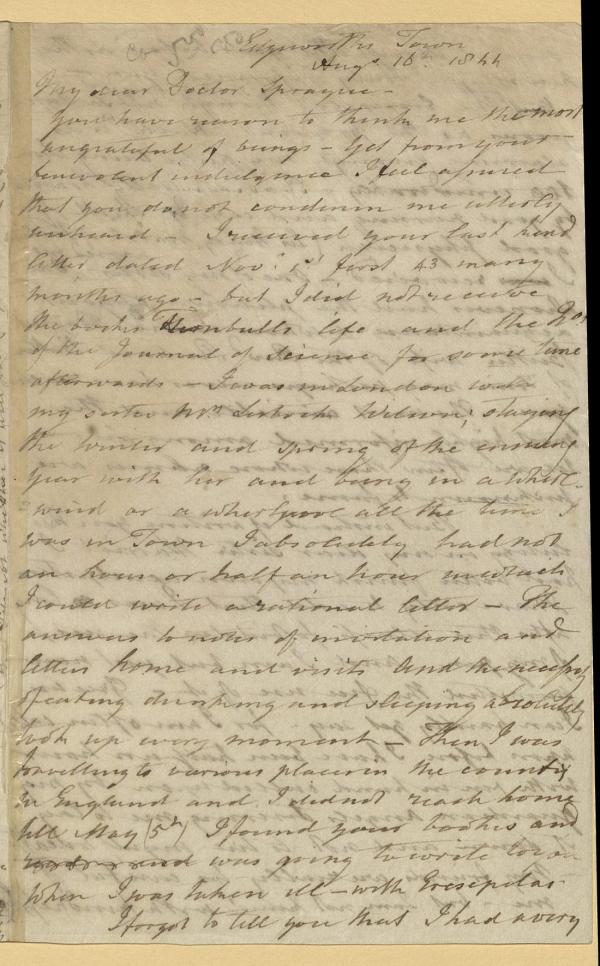 Edgworth's Town
Augt 16th 1844
My dear Doctor Sprague -
you have reason to think me the most
ungrateful of beings - Yet from your
benevolent indulgence I feel assured
that you do not condemn me utterly
unheard - I received your last kind
letter dated Novr 1st first 43 many
months ago - but I did not receive
the books Turnbulls life and the Nos
of the Journal of Science for some time
afterwards - I was in London with
my sister Mrs Lestock Wilson; staying
the winter and spring of the ensuing
year with her and being in a whirl-
wind or a whirlpool all the time I
was in Town I absolutely had not
an hour or half an hour in which
I could write a rational letter - The
answers to notes of invitation and
letters home and visits and the necessity
of eating drinking and sleeping absolutely
took up every moment - Then I was
travelling to various places in the country
in England and I did not reach home
till May (5th) I found your books and
and was going to write to you
when I was taken ill - with Eresepelas
I forgot to tell you that I had a very